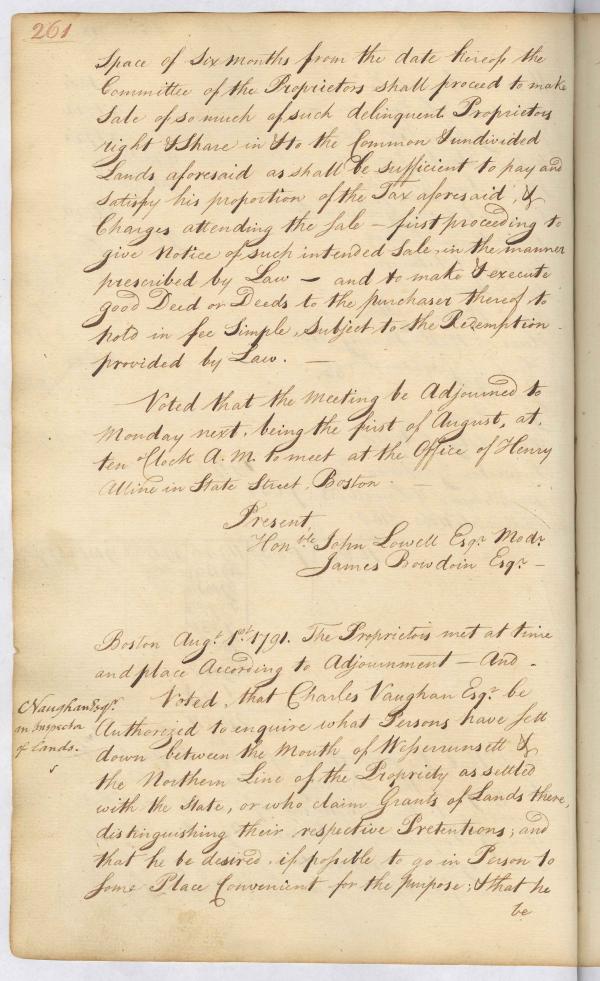 261
Space of Six months from the date hereof the
Committee of the Proprietors shall proceed to make
Sale of so much of such delinquent Proprietors
right & Share in & to the Common & undivided
Lands aforesaid as shall be sufficient to pay and
satisfy his proportion of the Tax aforesaid, &
Charges attending the Sale — first proceeding to
give Notice of such intended Sale, in the manner
prescribed by Law — and to make & execute
good Deed or Deeds to the purchaser thereof to
hold in fee Simple, Subject to the Redemption
provided by Law. —
Voted that the meeting be Adjourned to
Monday next, being the first of August, at
ten oClock A. M. to meet at the Office of Henry
Alline in State Street, Boston. —
Present,
Honble John Lowell Esqr. Modr.
James Bowdoin Esqr. —
Boston Augt. 1st. 1791. The Proprietors met at time
and place According to Adjournment — And —
CVaughan Esqr.
an Inspector
of Lands.
Voted, that Charles Vaughan Esqr. be
Authorized to enquire what Persons have Sett
down between the Mouth of Wesserrunsett &
the Northern Line of the Propriety as settled
with the State, or who claim Grants of Lands there,
distinguishing their respective Pretentions; and
that he be desired, if possible to go in Person to
Some Place Convenient for the purpose; & that he
be